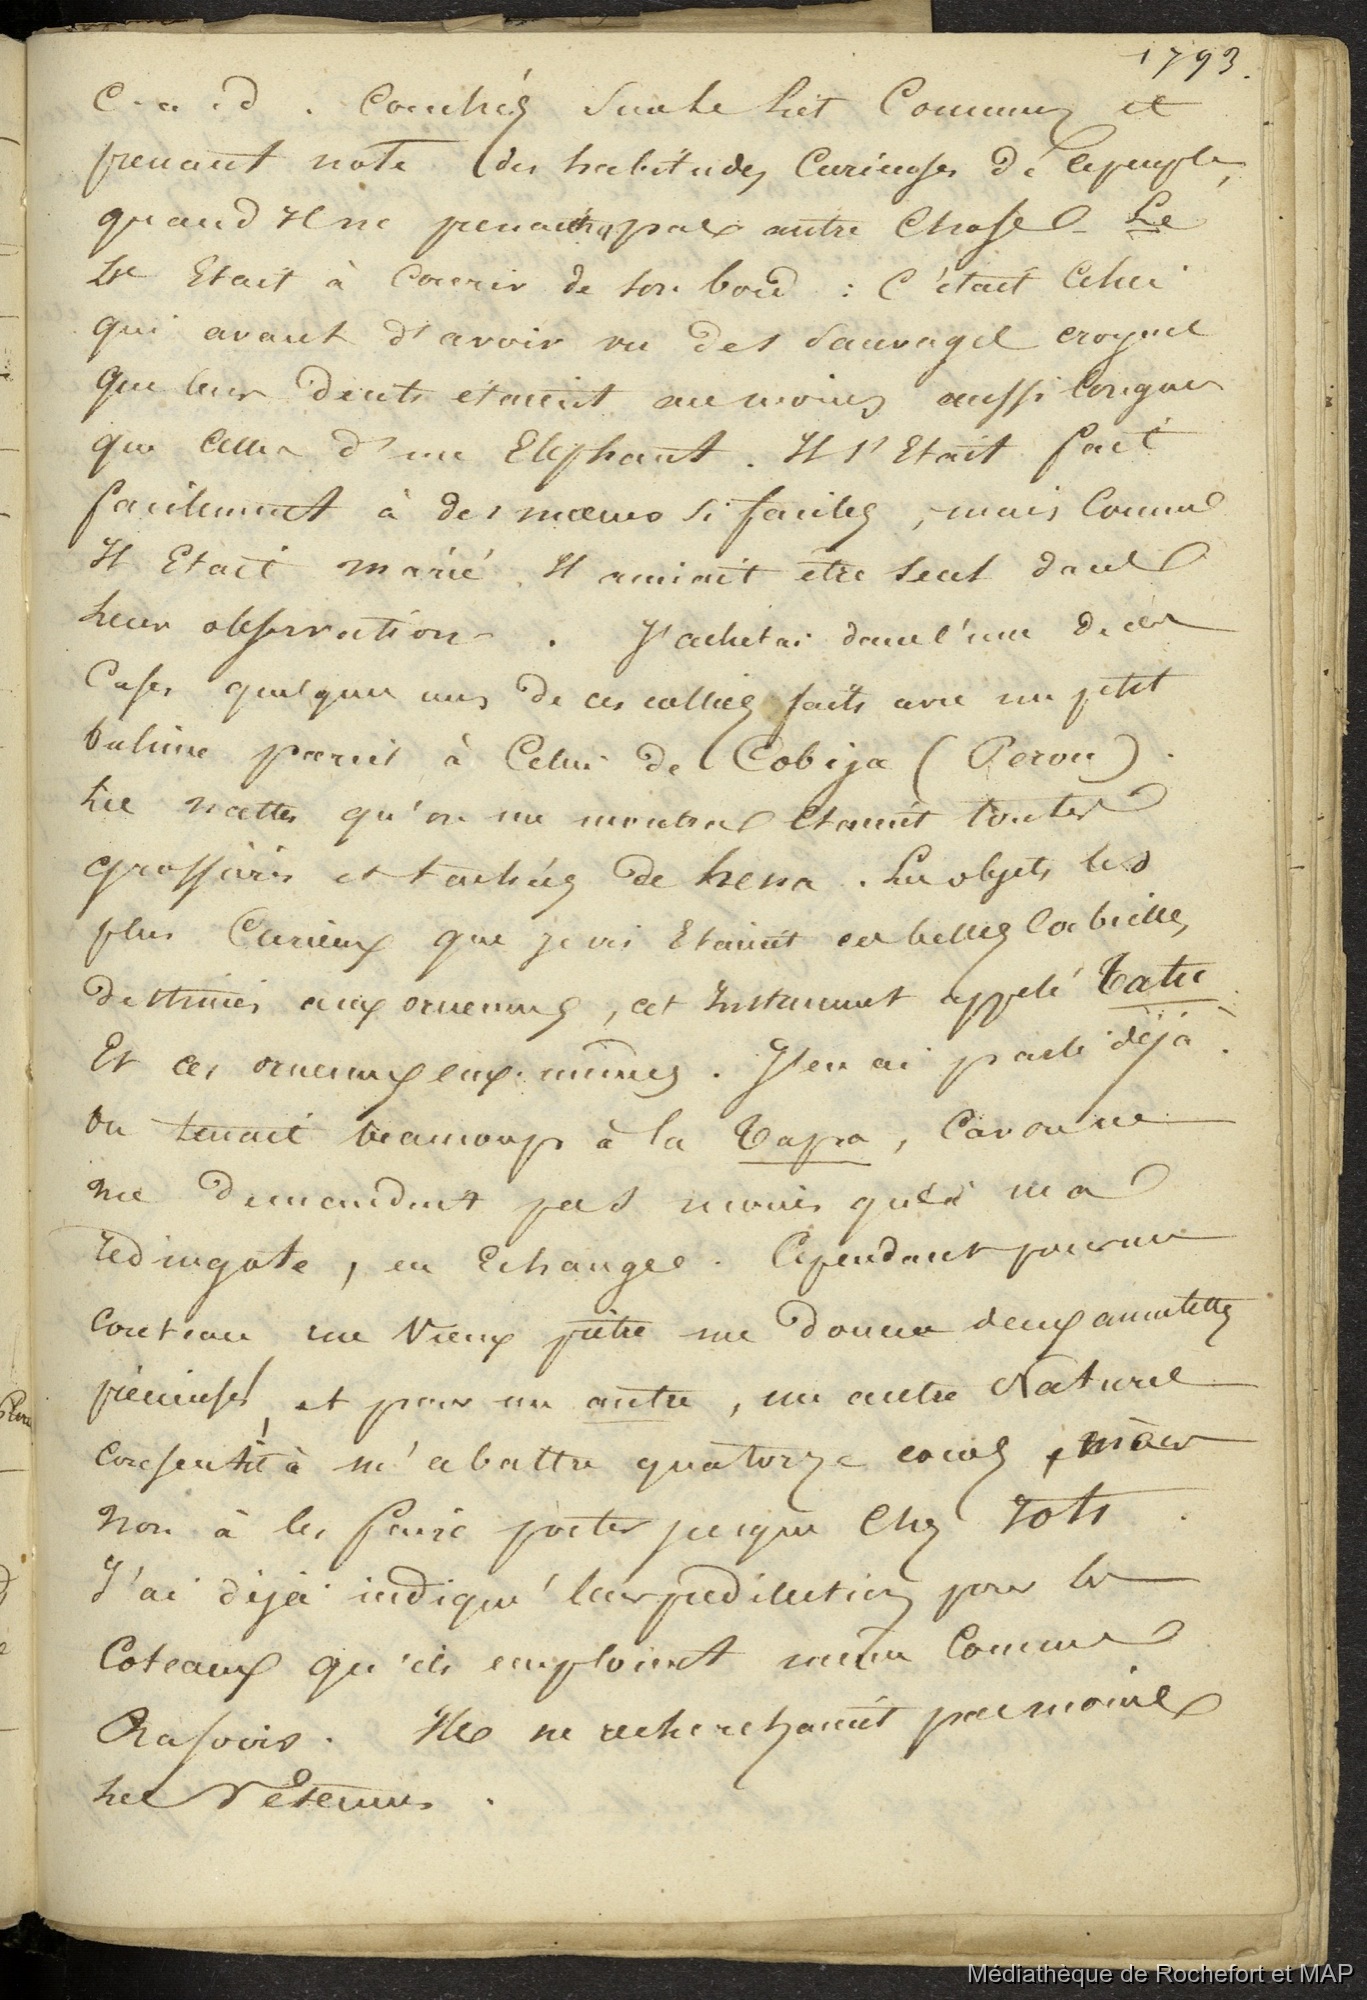 1793.
C-a-d. Couchés sur le lit Commun et
prenant note des habitudes Curieuses de ce peuple,
quand Il ne prenait pas autre Chose - Le
Etait à Courir de son bord : C'était Celui
qui avant d'avoir vu des Sauvages croyait
que leurs Dents étaient au moins aussi longues
que Celles d'un Elephant. Il s'Etait fait
facilement à des mœurs si faciles, mais Comme
Il Etait marié Il aimait être seul dans
leur observation. J'achetai dans l'une de ces
Cases quelques uns de ces colliers faits avec un petit
bulime pareil à Celui de Cobija (Perou).
Les nattes qu'on me montra Etaient toutes
grossières et tachées de hena. Les objets les
plus Curieux que je vis Etaient ces belles Corbeilles
destinées aux ornemens, cet Instrument appelé Tatu
Et ces ornemens eux-mêmes. J'en ai parlé déjà.
On tenait beaucoup à la Tapa, Car on ne
me demandait pas moins qu'à ma
redingote, en Echange. Cependant pour un
Couteau un Vieux prêtre me donna deux amulettes
précieuses, et pour un autre, un autre Naturel
consentit à m'abattre quatorze cocos, mais
non à les faire porter jusque Chez Tots.
J'ai déjà indiqué leur prédilection pour les
Coteaux qu'ils emploient même Comme
Rasoirs. Ils ne recherchaient pas moins
les Vêtemens.
Médiathèque de Rochefort et MAP